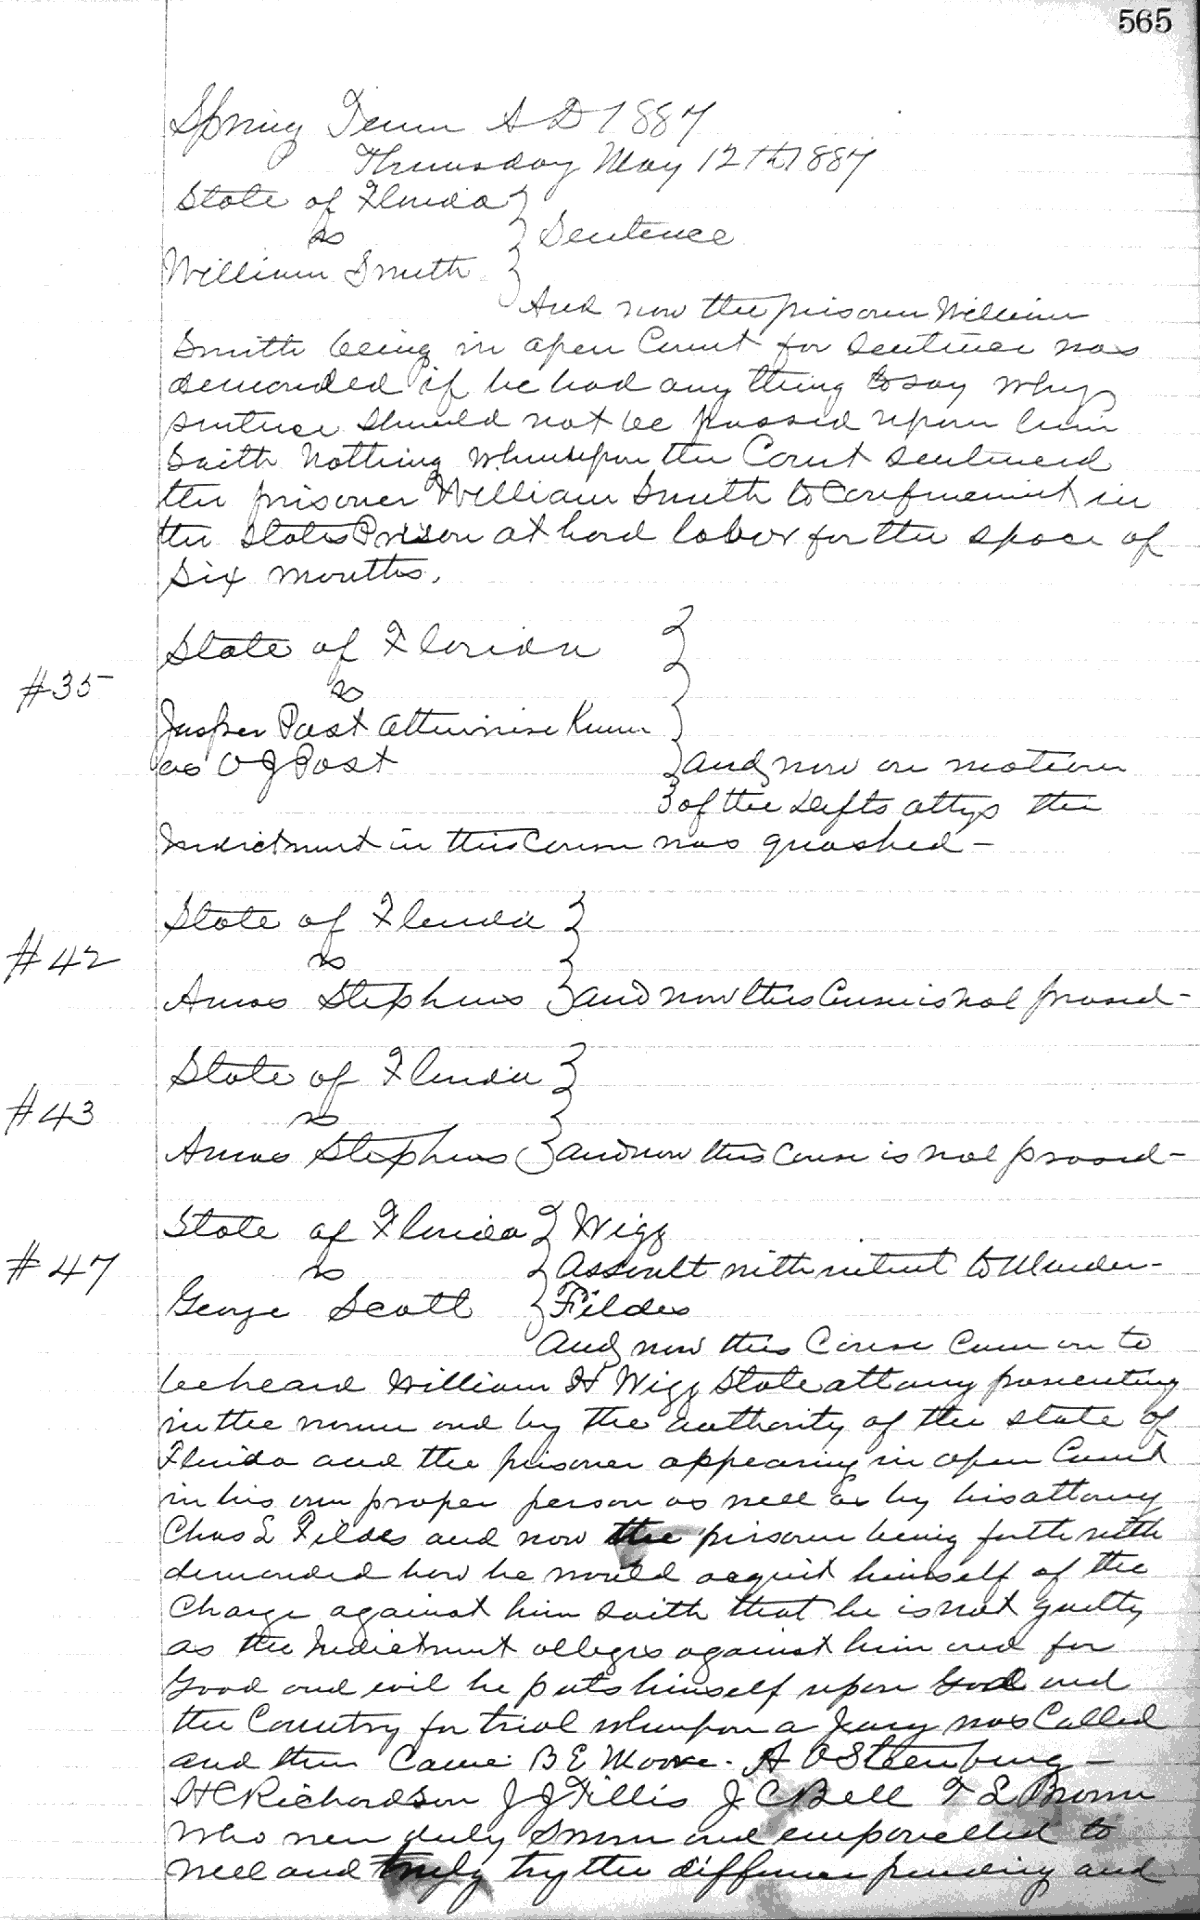 565
Spring Term A D 1887
Thursday May 12th 1887
State of Florida
vs
Sentence
William Smith
And now the prisoner William
Smith being in open Court for sentence was
demanded if he had any thing to say why
sentence should not be passed upon him
Saith Nothing whereupon the Court sentenced
the prisoner William Smith to confinement in
the States Prison at hard labor for the space of
Six months.
State of Florida
#35
vs
Jasper Post otherwise Known
as O J Post
and now on motion
of the Defts attys the
Indictment in this Cause was quashed -
State of Florida
#42
vs
Amos Stephens and now this Cause is nol prosed -
State of Florida
#43
vs
Amos Stephens and now this Cause is nol prosed -
State of Florida Wigg
#47
vs Assault with intent to Murder -
George Scott Fildes
and now this Cause Came on to
be heard William H Wigg State attorny prosecuting
in the name and by the authority of the state of
Florida and the prisoner appearing in open Court
in his own proper person as well as by his attorny
Chas L Fildes and now the prisoner being forthwith
demanded how he would acquit himself of the
Charge against him saith that he is not guilty
as the Indictment alleges against him and for
Good and evil he puts himself upon God and
the Country for trial whereupon a Jury was Called
and then Came B E Moore. A O Steenburg -
H C Richardson J J Fillis J C Bell T L Brown
who were duly Sworn and empanelled to
well and truly try the difference pending and